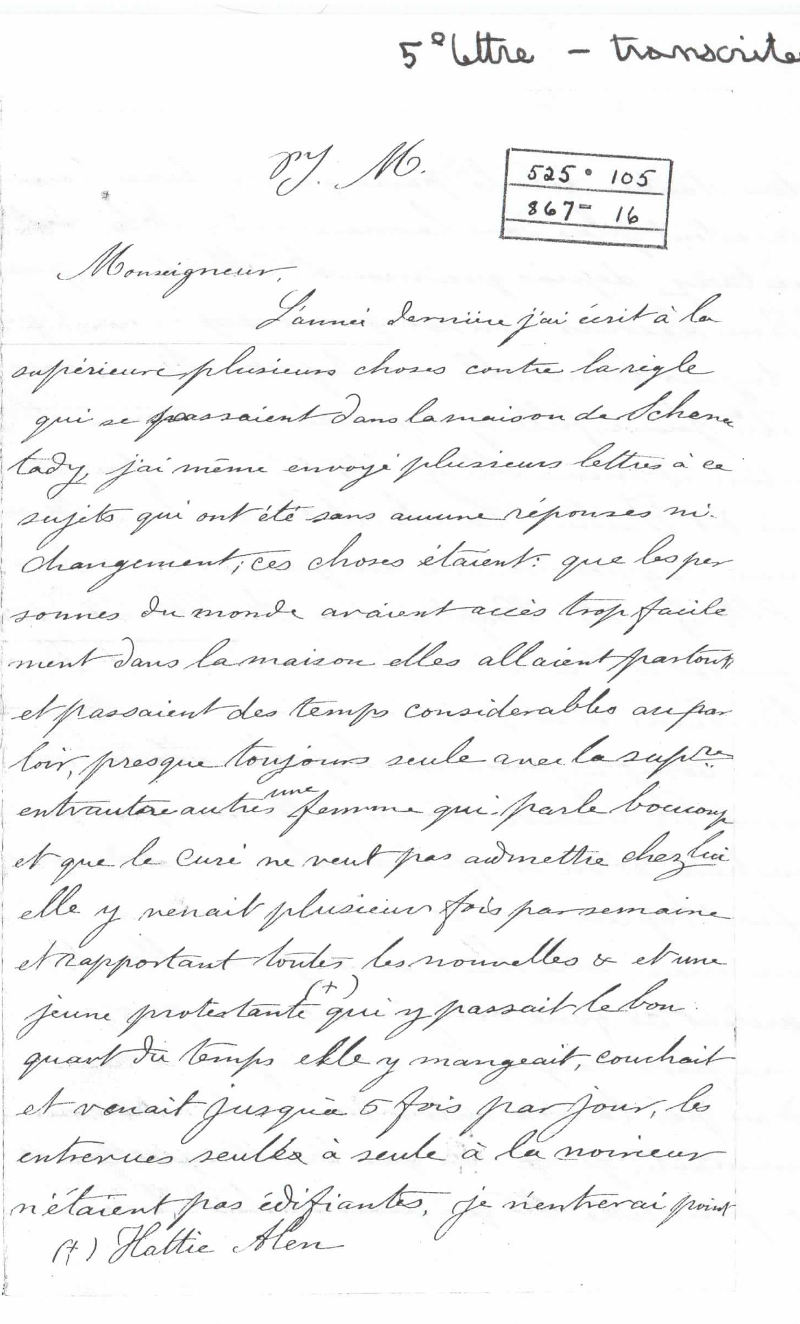 5º lettre - transcrite
J. M.
525 • 105
867 - 16
Monseigneur,
L'année dernière j'ai écrit à la
supérieure plusieurs choses contre la règle
qui se passaient dans la maison de Schenec
tady, j'ai même envoyé plusieurs lettres à ce
sujets qui ont été sans aucune réponses ni
changement; ces choses étaient: que les per
sonnes du monde avaient accès trop facile
ment dans la maison elles allaient partout
et passaient des temps considerables au par
loir, presque toujours seule avec la sup.re
entrautre autres une femme qui parle boucoup
et que le curé ne veut pas admettre chez lui
elle y venait plusieur fois par semaine
et rapportant toutes les nouvelles & et une
jeune protestante (+) qui y passait le bon
quart du temps elle y mangeait, couchait
et venait jusqu'à 5 fois par jour, les
entrevues seules à seule à la noirceur
n'étaient pas édifiantes, je n'entrerai point
(+) Hattie Alen